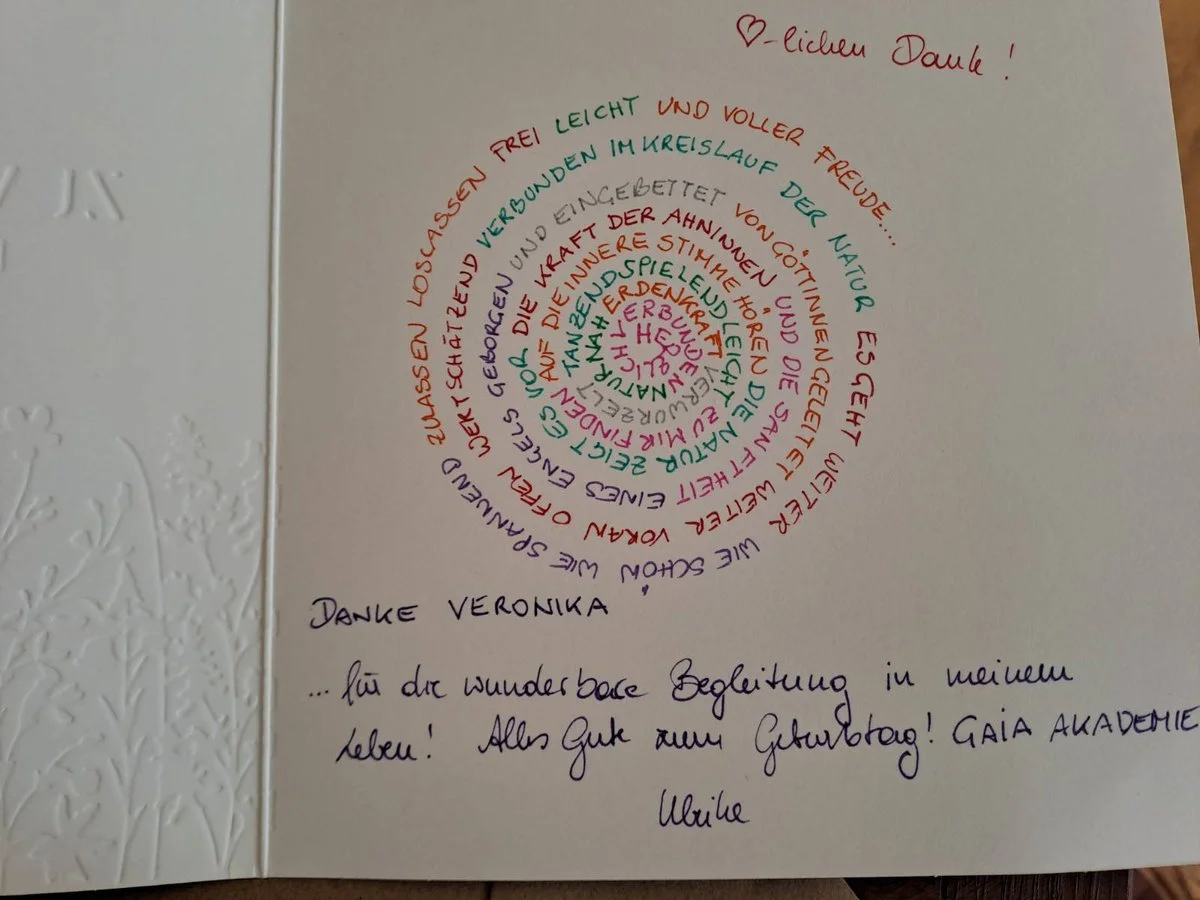 ♡-lichen Dank!
HERZLICH VERBUNDEN NATURNAH ERDENKRAFT VERWURZELT TANZEND SPIELEND LEICHT ZU MIR FINDEN AUF DIE INNERE STIMME HÖREN DIE NATUR ZEIGT ES VOR DIE KRAFT DER AHNINNEN UND DIE SANFTHEIT EINES ENGELS GEBORGEN UND EINGEBETTET VON GÖTTINNEN GELEITET WEITER VORAN OFFEN WERTSCHÄTZEND VERBUNDEN IM KREISLAUF DER NATUR ES GEHT WEITER WIE SCHÖN WIE SPANNEND ZULASSEN LOSLASSEN FREI LEICHT UND VOLLER FREUDE....
DANKE VERONIKA
... für die wunderbare Begleitung in meinem
Leben! Alles Gute zum Geburtstag! GAIA AKADEMIE
Ulrike